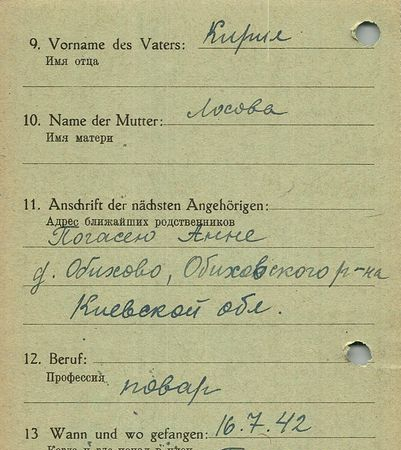 9. Vorname des Vaters: Кирил
Имя отца
10. Name der Mutter: Лосова
Имя матери
11. Anschrift der nächsten Angehörigen:
Адрес ближайших родственников
Погасею Анне
д. Обихово, Обиховского р-на
Киевской обл.
12. Beruf:
Профессия повар
13 Wann und wo gefangen: 16.7.42